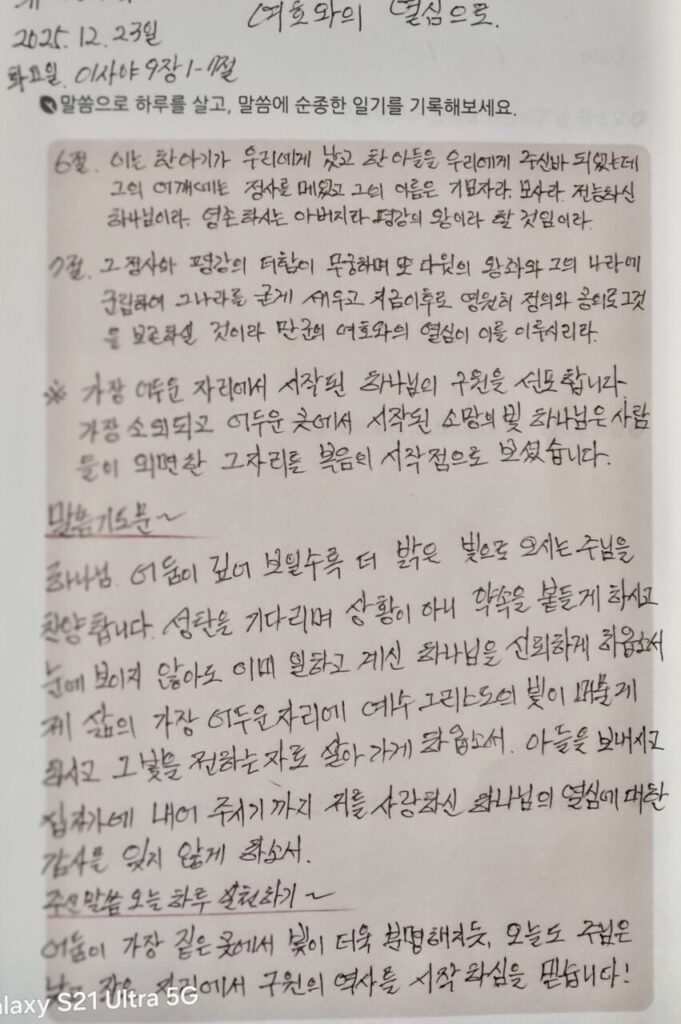 여호와의 열심으로.
2025. 12. 23일
화요일. 이사야 9장 1-7절
말씀으로 하루를 살고, 말씀에 순종한 일기를 기록해보세요.
6절. 이는 한 아기가 우리에게 났고 한 아들을 우리에게 주신바 되었는데
그의 어깨에는 정사를 메었고 그의 이름은 기묘자라. 모사라. 전능하신
하나님이라. 영존하시는 아버지라 평강의 왕이라 할 것임이라.
7절. 그 정사와 평강의 더함이 무궁하며 또 다윗의 왕좌와 그의 나라에
군림하여 그나라를 굳게 세우고 지금이후로 영원히 정의와 공의로 그것
을 보존하실 것이라 만군의 여호와의 열심이 이를 이루시리라.
※ 가장 어두운 자리에서 시작된 하나님의 구원을 선포합니다.
가장 소외되고 어두운 곳에서 시작된 소망의 빛 하나님은 사람
들이 외면한 그자리를 복음의 시작점으로 보셨습니다.
말씀기도문~
하나님. 어둠이 깊어 보일수록 더 밝은 빛으로 오시는 주님을
찬양합니다. 성탄을 기다리며 상황이 아니 약속을 붙들게 하시고
눈에 보이지 않아도 이미 일하고 계신 하나님을 신뢰하게 하옵소서
제 삶의 가장 어두운자리에 예수 그리스도의 빛이 머물게
하시고 그 빛을 전하는 자로 살아가게 하옵소서. 아들을 보내시고
십자가에 내어 주시기까지 저를 사랑하신 하나님의 열심에 대한
감사를 잊지 않게 하소서.
주신말씀 오늘 하루 실천하기~
어둠이 가장 짙은 곳에서 빛이 더욱 분명해지듯, 오늘도 주님은
작은 자리에서 구원의 역사를 시작하심을 믿습니다!
Galaxy S21 Ultra 5G